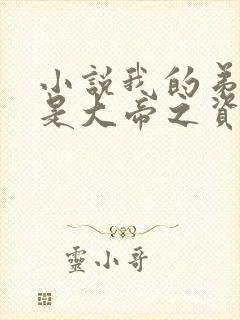 小說我的弟
是大帝之資
靈小哥